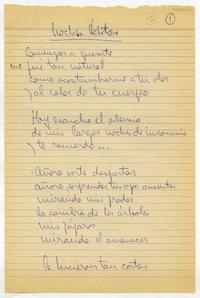 Noches
①
Comenzar a quererte
me fué tan natural
como acostumbrarme a tu voz
y al calor de tu cuerpo
Hoy escucho el silencio
de mis largas noches de insomnio
y te recuerdo ...
Añoro verte despertar
añoro sorprender tus ojos amantes
mirando mis prados
la sombra de los árboles
mis pájaros
mirando el amanecer
Se hicieron tan cortas